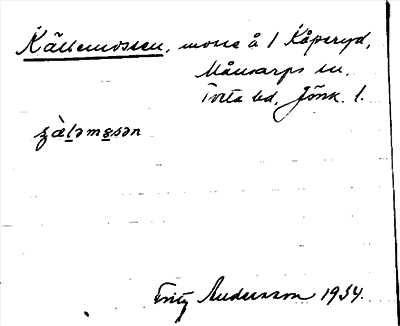 Källemossen, mosse å 1 Kåperyd,
Månsarps sn,
Tveta hd, Jönk. l.
ɕàl̠əmo̠sən
Fritz Andersson 1934.